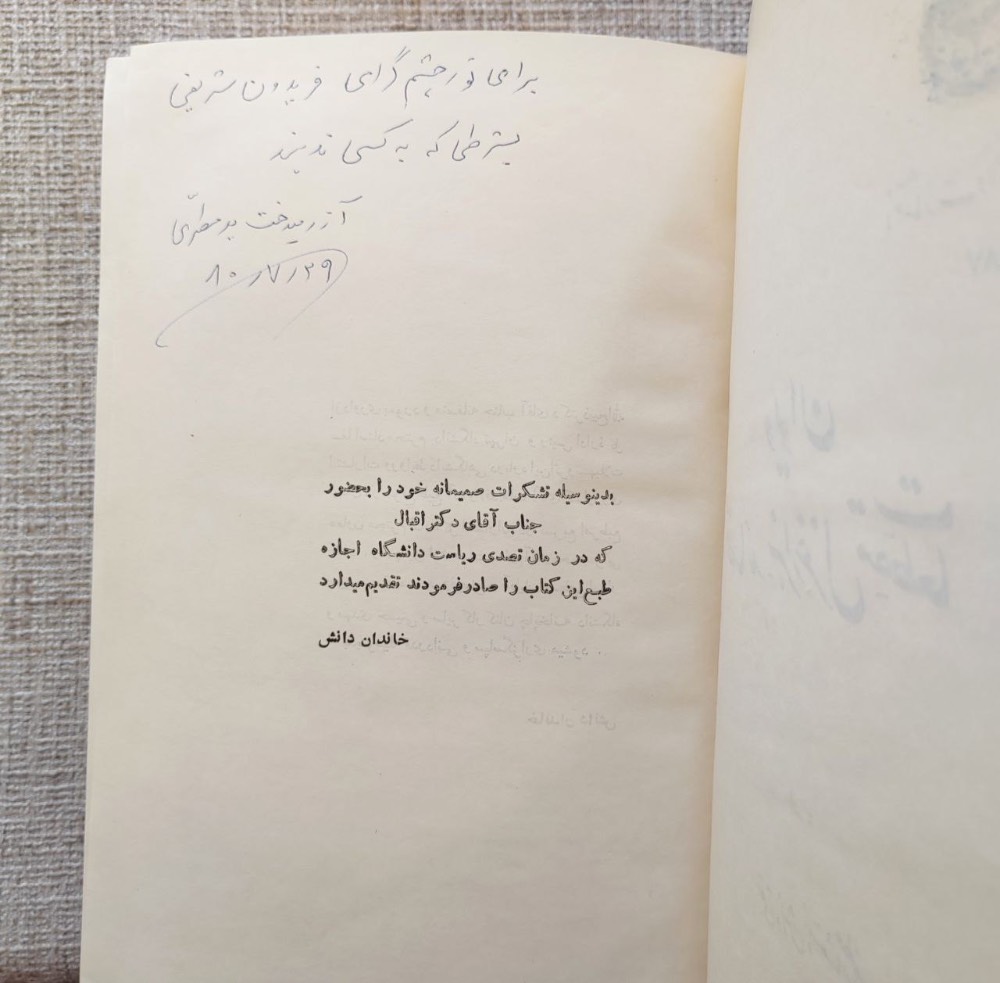 برای نورچشم گرامی فریدون شریفی
بشرطی که به کسی ندهند
آزرمیدخت
۸۰/۷/۲۹
بدینوسیله تشکرات صمیمانه خود را بحضور
جناب آقای دکتر اقبال
که در زمان تصدی ریاست دانشگاه اجازه
طبع این کتاب را صادر فرمودند تقدیم میدارد
خاندان دانش